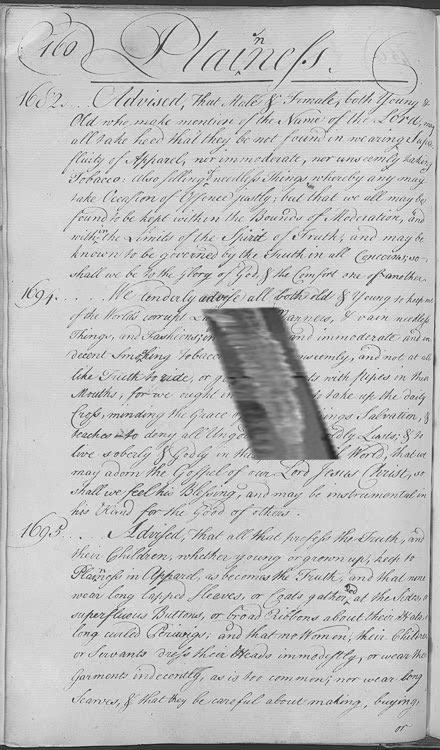 160 Plainness.
1682... Advised, That Male & Female, both Young &
Old who make mention of the Name of the Lord, may
all take heed that they be not found in wearing Supe
fluity of Apparel, nor immoderate, nor unseemly taking
Tobacco: also selling needless Things whereby any may
take Occasion of Offence justly; but that we all may be
found to be kept within the Bounds of Moderation, and
within the Limits of the Spirit of Truth, and may be
known to be governed by the Truth in all Concerns, so
shall we be to the Glory of God, & the Comfort one of another.
1694. . . . . We tenderly advise all both old & Young to keep out
of the World's corrupt & vain needless
Things, and Fashions, and immoderate and in
decent Smoking Tobacco and not at all
like Truth to ride, or with pipes in their
Mouths; for we ought to take up the daily
Cross, minding the Grace Salvation, &
teaches to deny all Lusts; & to
live soberly & Godly in World, that we
may adorn the Gospel of our Lord Jesus Christ, so
shall we feel his Blessing, and may be instrumental in
his Hand for the Good of others.
1695. . . Advised, That all that profess the Truth, and
their Children, whether young or grown up, keep to
Plainness in Apparel, as becomes the Truth, and that none
wear long lapped Sleeves, or Coats gathered at the Sides, or
superfluous Buttons, or broad Ribbons about their Hats, or
long curled Perriwigs; and that no Women, their Children
or Servants dress their Heads immodestly, or wear their
Garments indecently, as is too common; nor wear long
Scarves, & that they be careful about making, buying,
or